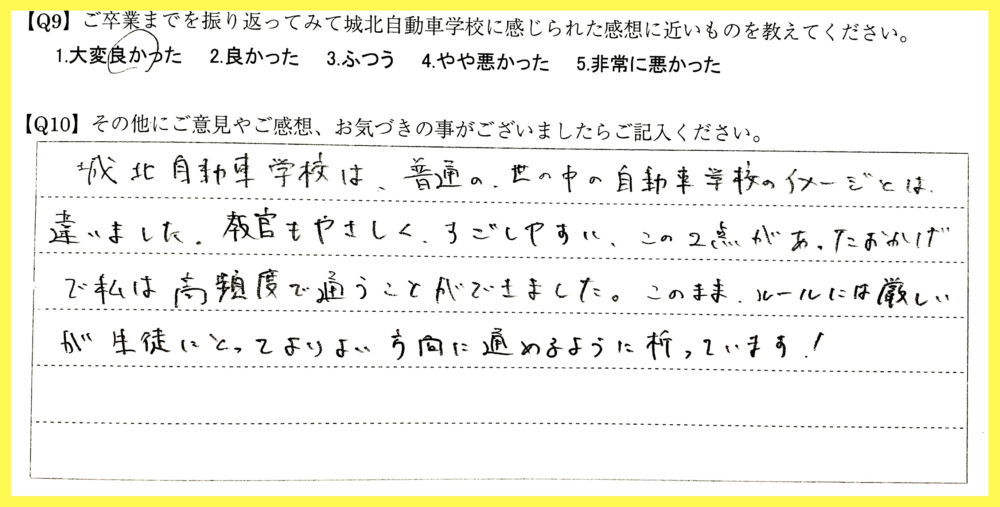 【Q9】ご卒業までを振り返ってみて城北自動車学校に感じられた感想に近いものを教えてください。
1.大変良かった 2.良かった 3.ふつう 4.やや悪かった 5.非常に悪かった
【Q10】その他にご意見やご感想、お気づきの事がございましたらご記入ください。
城北自動車学校は、普通の、世の中の自動車学校のイメージとは、
違いました。教官もやさしく、すごしやすい、この2点があったおかげ
で私は高頻度で通うことができました。このまま、ルールには厳しい
が生徒にとってよりよい方向に進めるように祈っています!